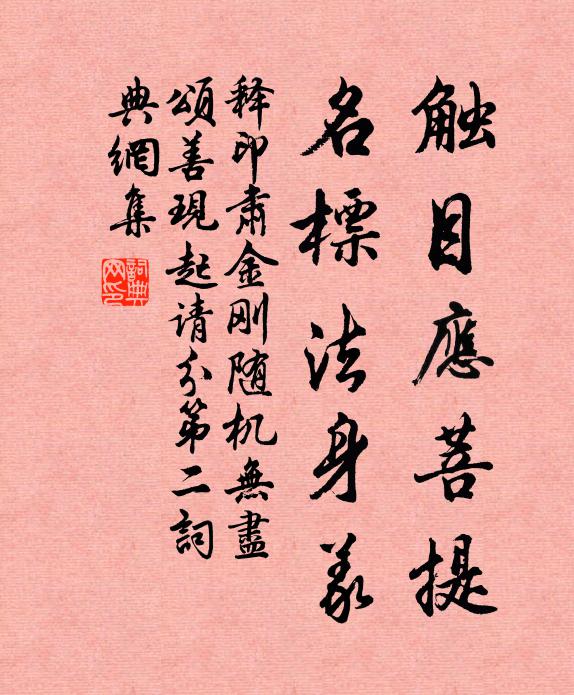 触目應菩提
名標法身義
释印肃金刚随机無盡
頌善現起请分第二詞
典網集
詞典网印